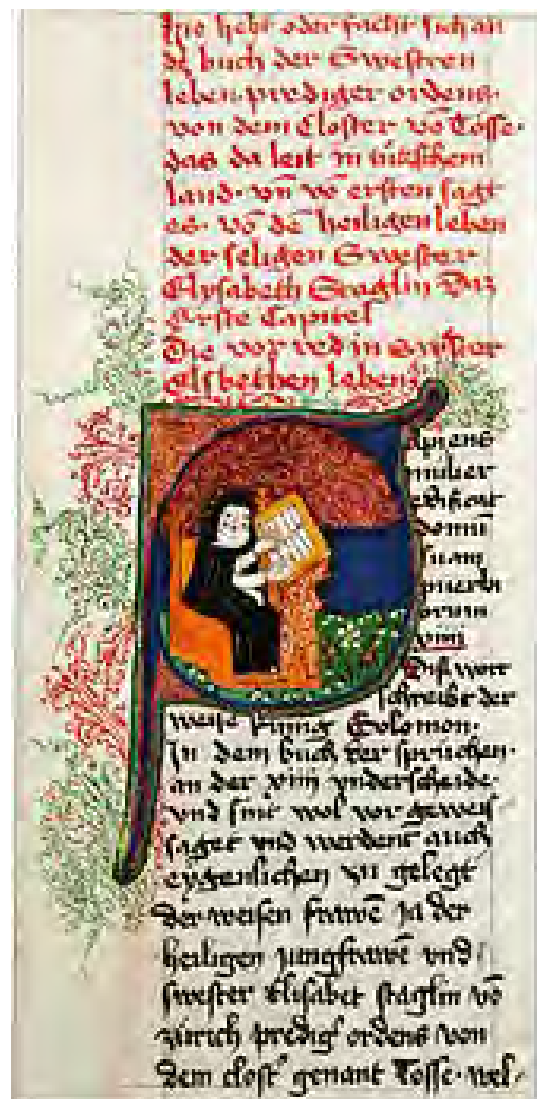 Hie hebt oder facht sich an
dz buch der Swestren
leben prediger ordens
von dem Closter vō Tösse.
das da leit in
land. vn̄ vō ersten sagt
es. vō dē heiligen leben
der seligen Swester
Elysabeth Staglin Daz
Erste Capitel
Die vor red in swester
elsbethen leben
apiens
mulier
edificat
domū
suam
puerbi
orum
xiiij
Disz wort
schreibt der
weise kunig Salomon.
In dem buch der spruchen.
an der xiiij vnderscheide.
vnd sint wol vor geweis
saget vnd werdent auch
eygenlichen zu gelegt
der weisen frawē Ja der
heiligen jungfrawē vnd
swester Elisabet staglin vō
zürich predig' ordens von
dem clost' genant Tösse. wel